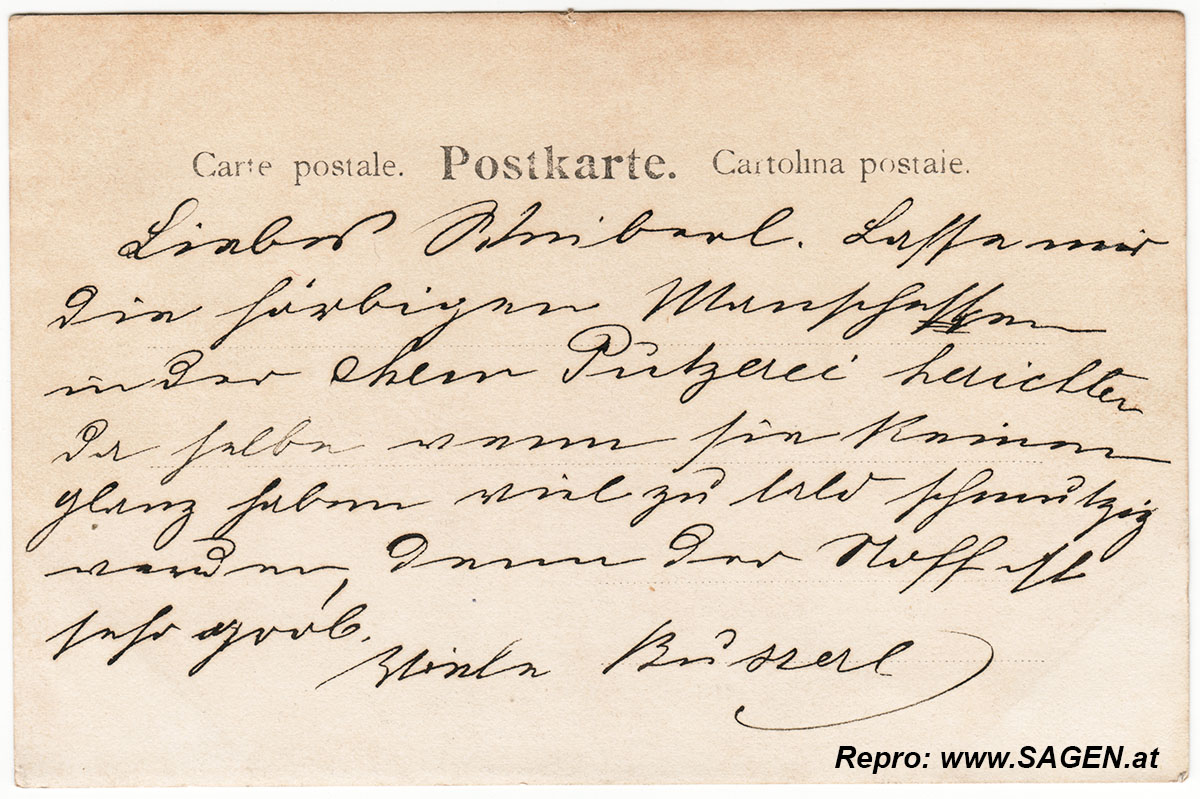 Carte postale. Postkarte. Cartolina postale.
Liebes Weiberl. Lasse mir
die färbigen Manschetten
in der chem Putzerei herichten
da selbe wenn sie keinen
glanz haben viel zu bald schmutzig
werden, denn der Stoff ist
sehr grob.
Viele Busserl
Repro: www.SAGEN.at